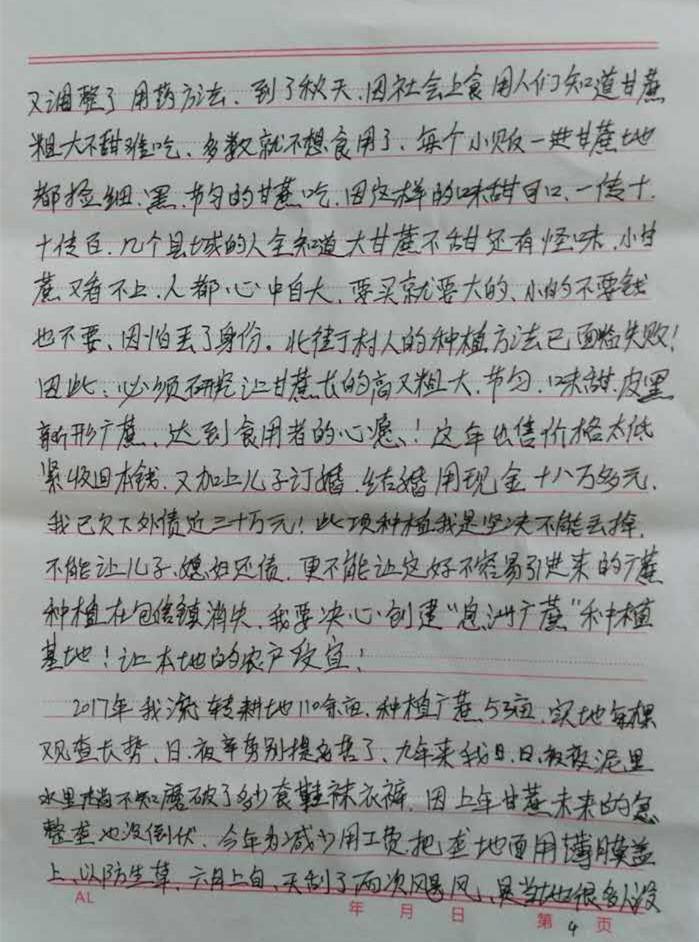 又调整了用药方法、到了秋天、因社会上食用人们知道甘蔗
粗大不甜难吃、多数就不想食用了、每个小贩一进甘蔗地
都捡细、黑、节匀的甘蔗吃、因这样的味甜可口、一传十、
十传百、几个县城的人全知道大甘蔗不甜还有怪味、小甘
蔗又看不上、人都心中自大、要买就要大的、小的不要钱
也不要、因怕丢了身份。北徍于村人的种植方法已面临失败!
因此:必须研究让甘蔗长的高又粗大、节匀、口味甜、皮黑
新形广蔗、达到食用者的心愿、!这年出售价格太低
紧收回本钱、又加上儿子订婚、结婚用现金十八万多元、
我已欠下外债近三十万元!此项种植我是坚决不能丢掉、
不能让儿子、媳妇还债、更不能让这好不容易引进来的广蔗
种植在包信镇消失、我要决心创建“息州广蔗”种植
基地!让本地的农户受宜!
2017年我流转耕地110余亩、种植广蔗53亩、实地每棵
观查长势、日、夜辛劳别提多苦了、九年来我日、日、夜夜泥里
水里 不知磨破了多少套鞋袜衣裤、因上年甘蔗未来的急
整垄也没倒伏、今年为减少用工费、把垄地面用薄膜盖
上、以防生草、六月上旬、天刮了两次飓风、是当地很多人没
AL
年 月 日 第 4 页